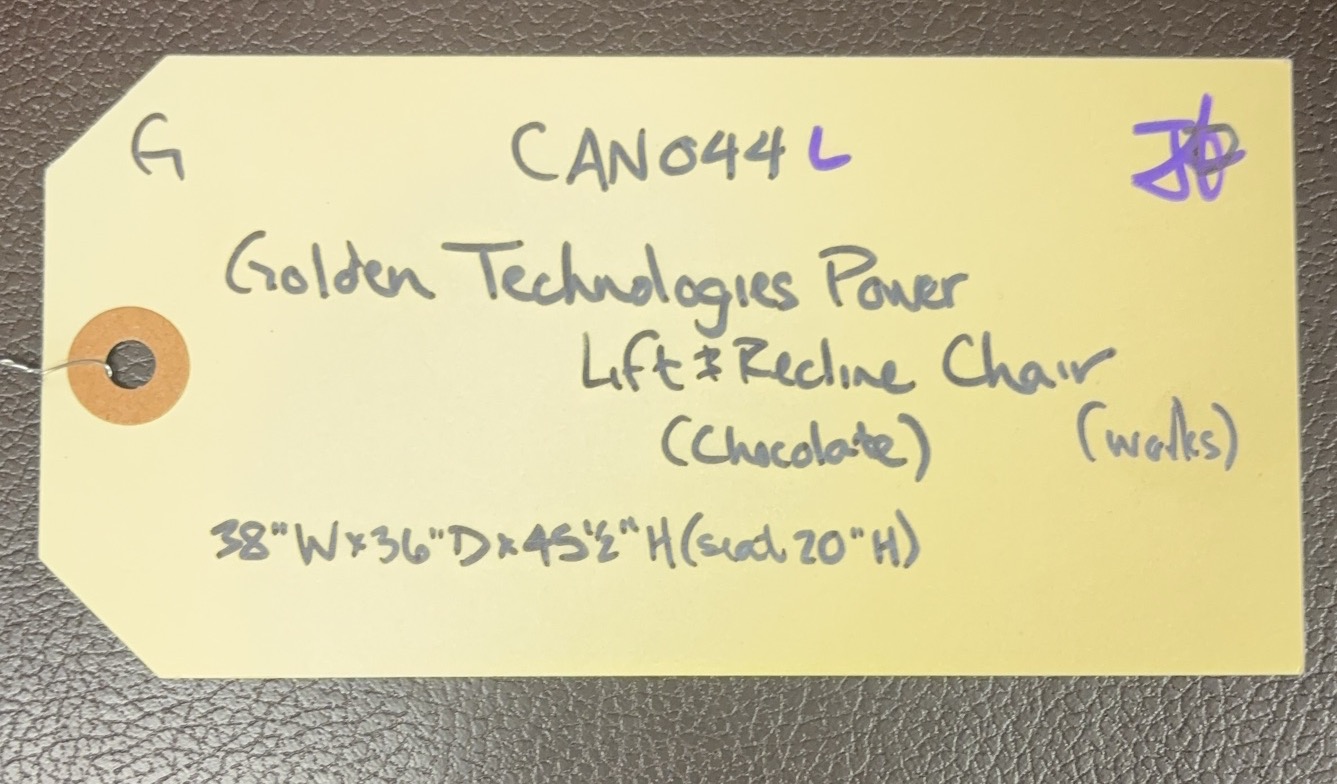 G CAN044 L
Golden Technologies Power
Lift & Recline Chair
(Chocolate) (works)
38"W x 36"D x 45½"H (seat 20"H)